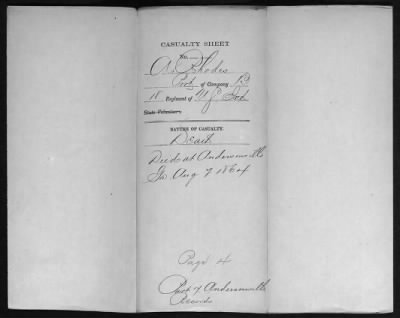 CASUALTY SHEET
No.
A. Rhodes
Pvt of Company D
18 Regiment of U.S. Inf
State Volunteers.
NATURE OF CASUALTY.
Death
Died at Andersonville
Ga Aug 7 1864
Page 4
Andersonville
Records